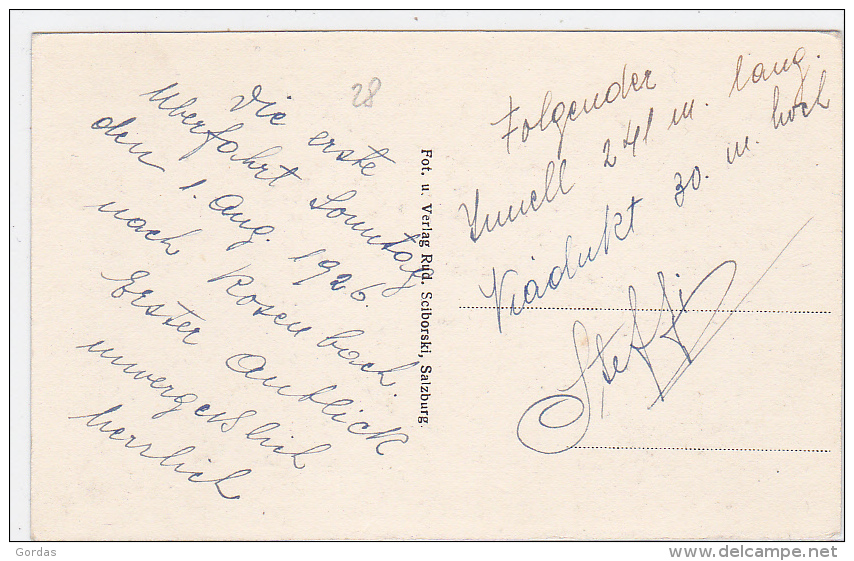 28
Die erste
Überfahrt Sonntag
den 1. Aug. 1926.
nach Rosenbach.
Erster Anblick
unvergeßlich
herrlich
Fot. u. Verlag Rud. Sciborski, Salzburg.
Folgender
Tunell 241 m. lang.
Viadukt 30. m. hoch
Steffi
Gordas
www.delcampe.net